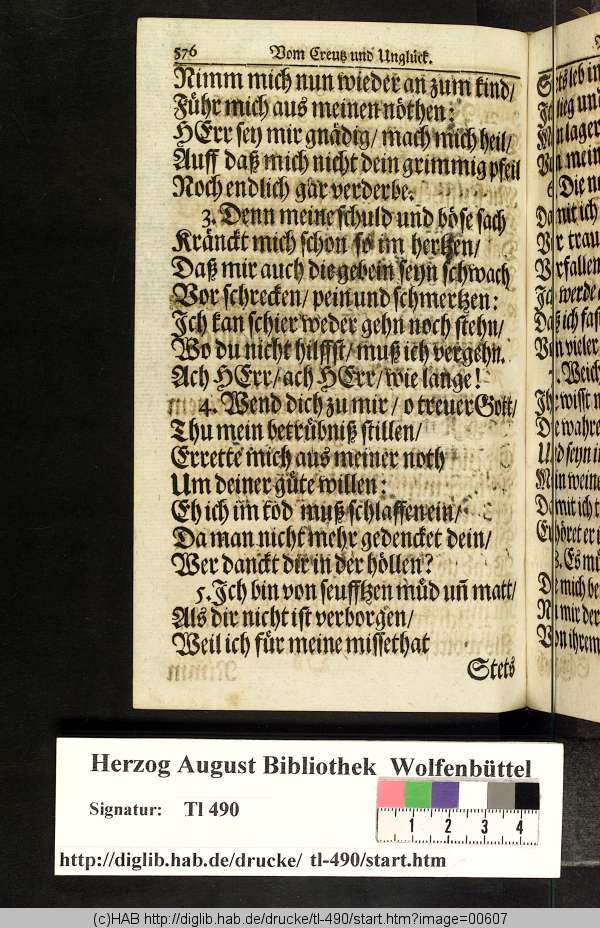 576 Vom Creutz und Unglück.
Nimm mich nun wieder an zum kind/
Führ mich aus meinen nöthen:
HErr sey mir gnädig/ mach mich heil/
Auff daß mich nicht dein grimmig pfeil
Noch endlich gar verderbe.
3. Denn meine schuld und böse sach
Kränckt mich schon so im hertzen/
Daß mir auch die gebein seyn schwach
Vor schrecken/ pein und schmertzen:
Ich kan schier weder gehn noch stehn/
Wo du nicht hilffst/ muß ich vergehn.
Ach HErr/ ach HErr/ wie lange!
4. Wend dich zu mir/ o treuer Gott/
Thu mein betrübniß stillen/
Errette mich aus meiner noth
Um deiner güte willen:
Eh ich im tod muß schlaffen ein/
Da man nicht mehr gedencket dein/
Wer danckt dir in der höllen?
5. Ich bin von seufftzen müd uñ matt/
Als dir nicht ist verborgen/
Weil ich für meine missethat
Stets
Herzog August Bibliothek Wolfenbüttel
Signatur: Tl 490
1 2 3 4
http://diglib.hab.de/drucke/ tl-490/start.htm
(c)HAB http://diglib.hab.de/drucke/tl-490/start.htm?image=00607